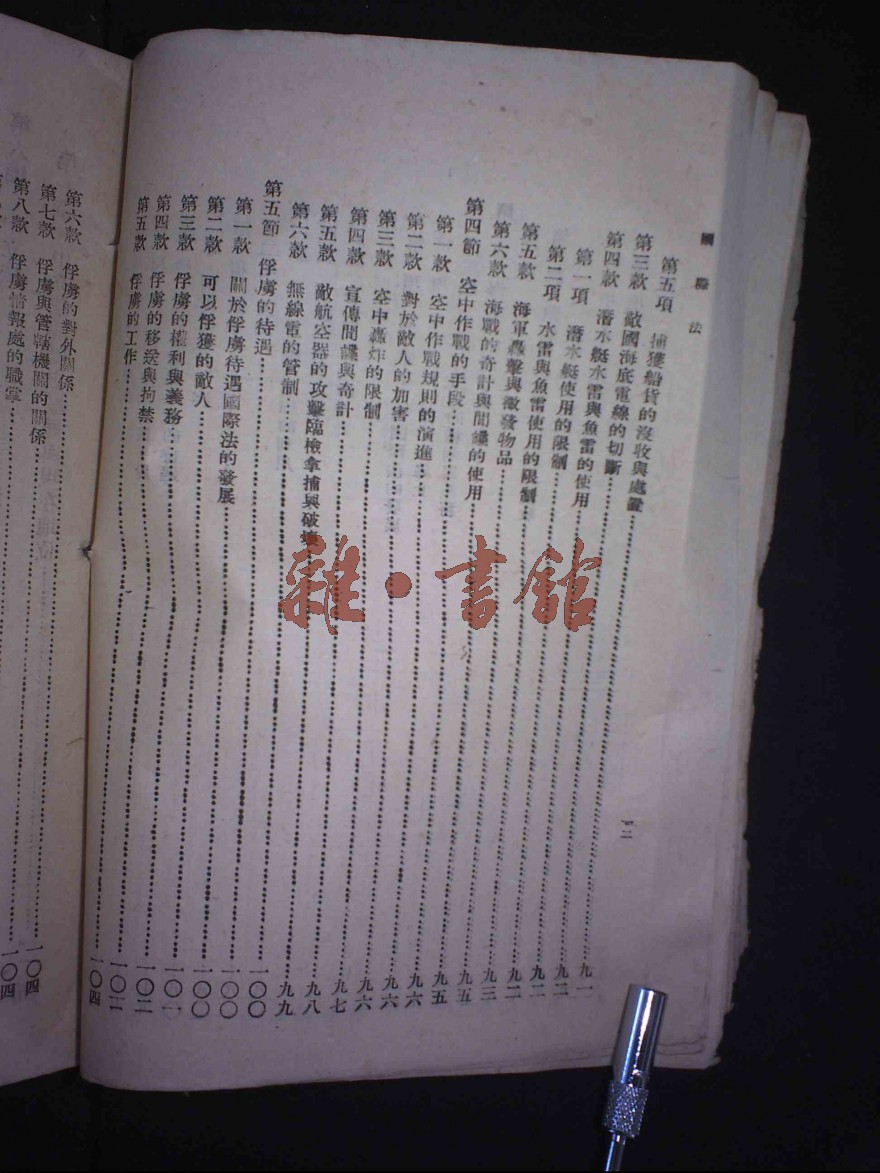 國際法
第五項 捕獲船貨的沒收與處置……九一
第三款 敵國海底電線的切斷……九二
第四款 潛水艇水雷與魚雷的使用……九二
第一項 潛水艇使用的限制……九二
第二項 水雷與魚雷使用的限制……九三
第五款 海軍轟擊與徵發物品……九五
第六款 海戰的奇計與間諜的使用……九五
第四節 空中作戰的手段……九六
第一款 空中作戰規則的演進……九六
第二款 對於敵人的加害……九六
第三款 空中轟炸的限制……九七
第四款 宣傳間諜與奇計……九八
第五款 敵航空器的攻擊臨檢拿捕與破壞……九九
第六款 無線電的管制……一〇〇
第五節 俘虜的待遇……一〇〇
第一款 關於俘虜待遇國際法的發展……一〇〇
第二款 可以俘獲的敵人……一〇一
第三款 俘虜的權利與義務……一〇二
第四款 俘虜的移送與拘禁……一〇二
第五款 俘虜的工作……一〇四
二
第六款 俘虜的對外關係……一〇四
第七款 俘虜與管轄機關的關係……一〇四
第八款 俘虜情報處的職掌……
雜·書館